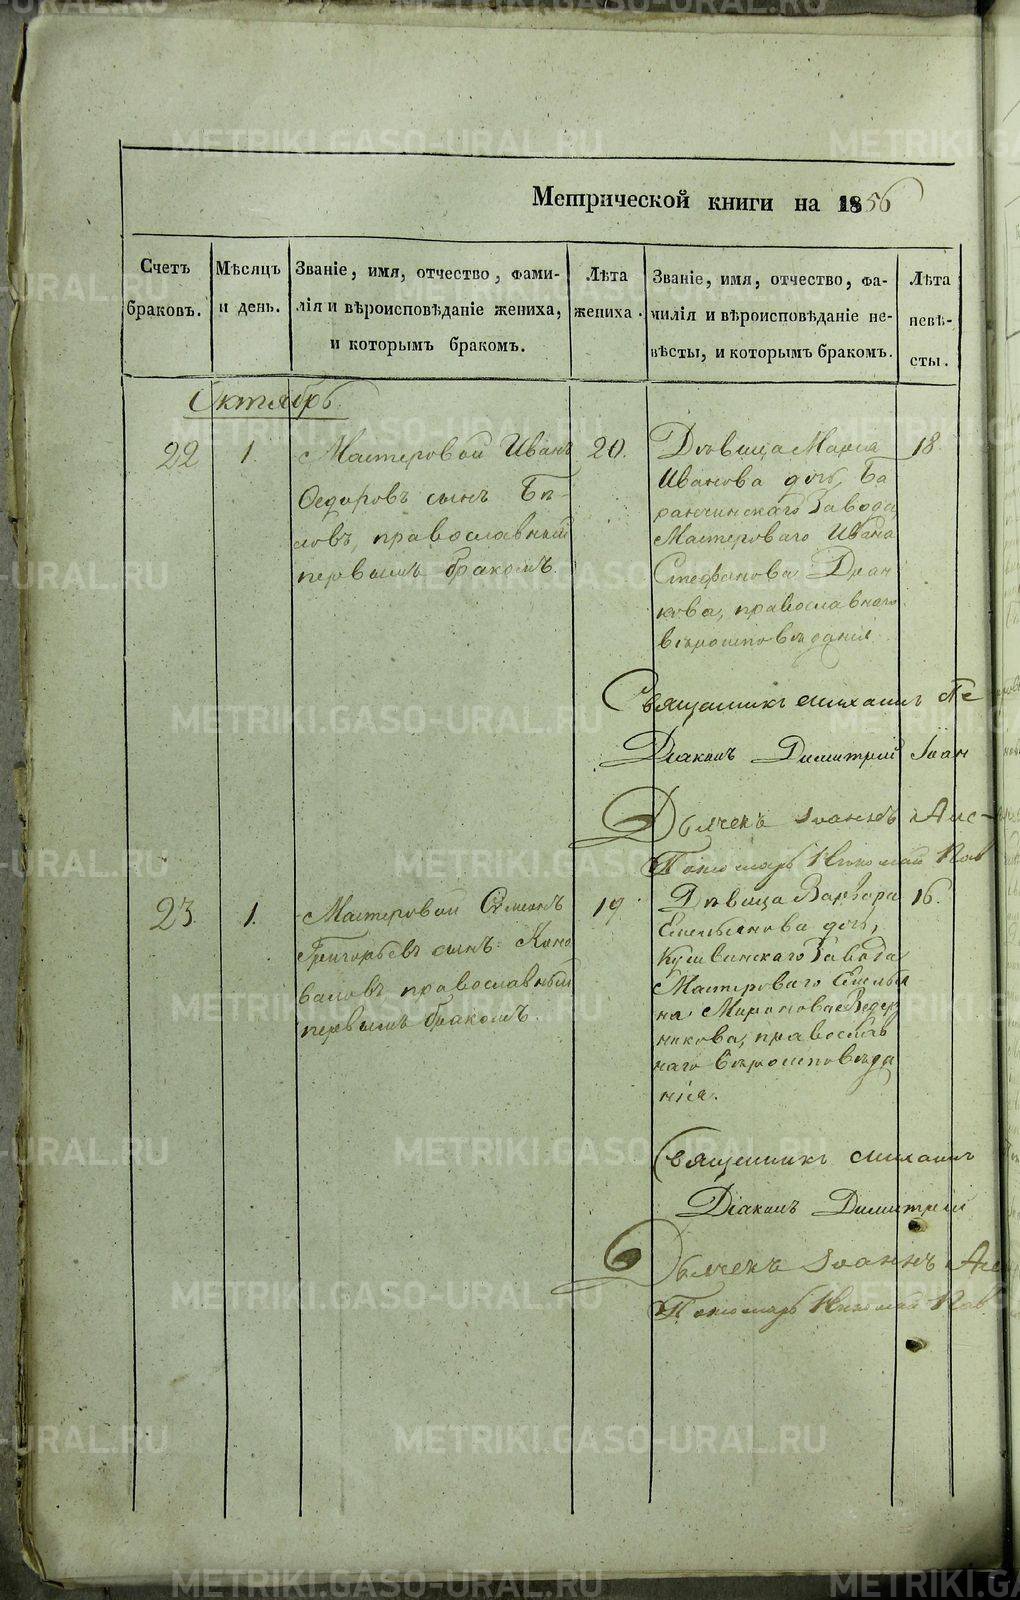 Метрической книги на 1856
Счетъ браковъ.
Мѣсяцъ и день.
Званіе, имя, отчество, фами-
лія и вѣроисповѣданіе жениха,
и которымъ бракомъ.
Лѣта жениха.
Званіе, имя, отчество, фа-
милія и вѣроисповѣданіе не-
вѣсты, и которымъ бракомъ.
Лѣта
невѣ-
сты.
Октябрь.
22
1.
Мастеровой Иванъ
Ѳедоровъ сынъ Бѣ-
ловъ, православный
первымъ бракомъ.
20.
Дѣвица Марія
Иванова дочь, Ба
ранчинскаго Завода
Мастероваго Ивана
Стефанова Дран
кова, православнаго
вѣроисповѣданія.
18.
Священникъ Михаилъ Пе
Діаконъ Димитрій Іоан
Дьячекъ Іоаннъ
Пономарь Николай Пав
23.
1.
Мастеровой Симеонъ
Григорьевъ сынъ Коно
валовъ православный
первымъ бракомъ.
19.
Дѣвица Варвара
Емельянова дочь,
Кушвинскаго Завода
Мастероваго Емелья
на Миронова Ведер
никова, православ
наго вѣроисповѣда
нія.
16.
Священникъ Михаилъ
Діаконъ Димитрій
Дьячекъ Іоаннъ
Пономарь Николай Пав
METRIKI.GASO-URAL.RU